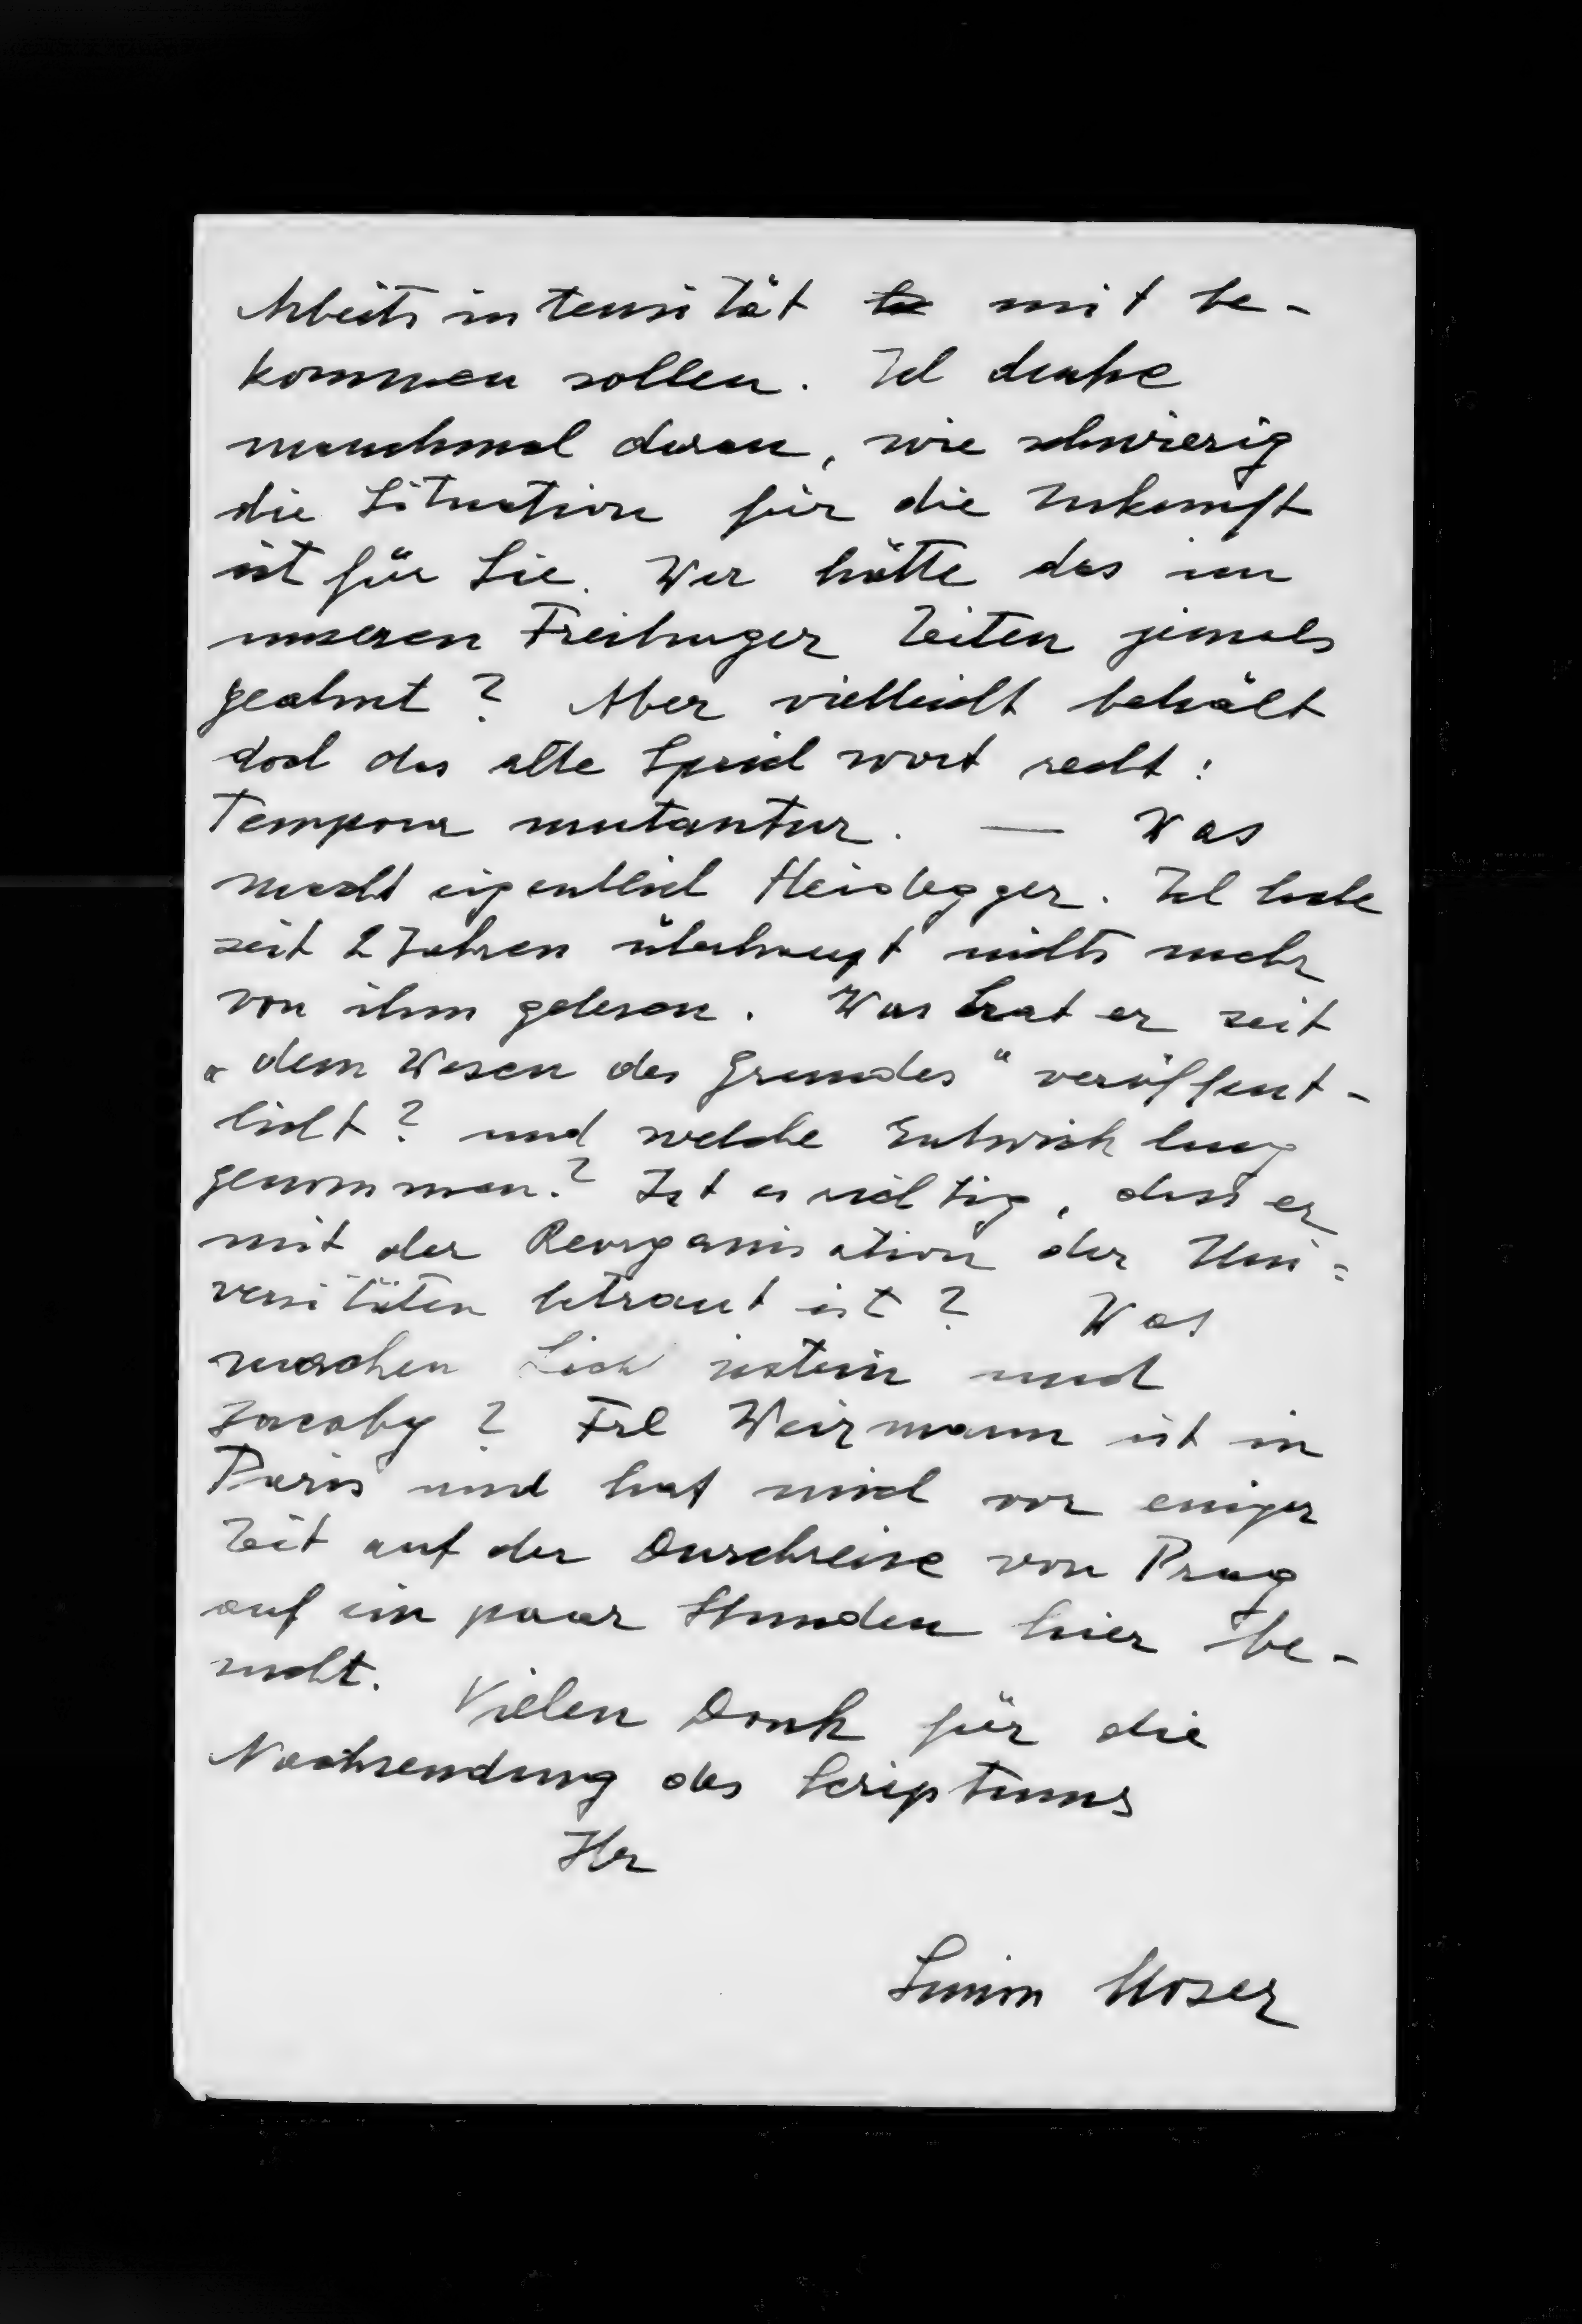 Arbeitsintensität mit be-
kommen sollen. Ich denke
manchmal daran, wie schwierig
die Situation für die Zukunft
ist für Sie. Wer hätte das in
unseren Freiburger Zeiten jemals
geahnt? Aber vielleicht behält
doch das alte Sprichwort recht:
Tempora mutantur. — Was
macht eigentlich Heidegger. Ich habe
seit 2 Jahren überhaupt nichts mehr
von ihm gelesen. Was hat er seit
„dem Wesen des Grundes" veröffent-
licht? und welche Entwicklung
genommen? Ist es richtig, dass er
mit der Reorganisation der Uni=
versitäten betraut ist? Was
machen Lichtenstein und
Jacoby? Frl Weizmann ist in
Paris und hat mich vor einiger
Zeit auf der Durchreise von Prag
auf ein paar Stunden hier be-
sucht. Vielen Dank für die
Nachsendung des Scriptums
Ihr
Simon Moser